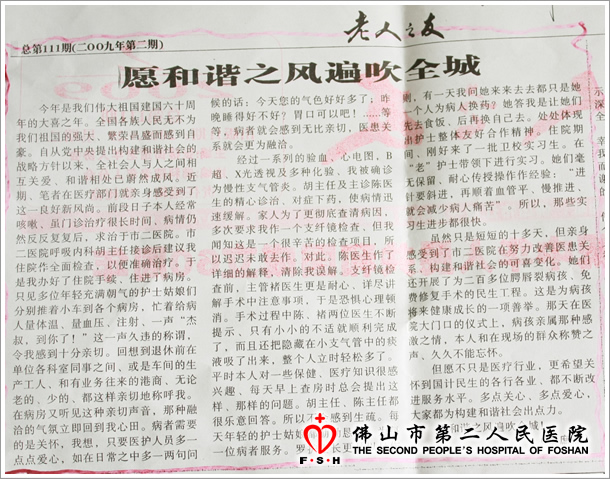 老人之友
总第111期(二〇〇九年第二期)
愿和谐之风遍吹全城
今年是我们伟大祖国建国六十周
年的大喜之年。全国各族人民无不为
我们祖国的强大、繁荣昌盛而感到自
豪。自从党中央提出构建和谐社会的
战略方针以来,全社会人与人之间相
互关爱、和谐相处已蔚然成风。近
期,笔者在医疗部门就亲身感受到了
这一良好新风尚。前段日子本人经常
咳嗽,虽门诊治疗很长时间、病情仍
然反反复复后,求治于市二医院。市
二医院呼吸内科胡主任接诊后建议我
住院作全面检查,以便准确治疗。于
是我办好了住院手续、住进了病房。
只见多位年轻充满朝气的护士姑娘们
分别推着小车到各个病房,忙着给病
人量体温、量血压、注射,一声“杰
叔,到你了!”这一声久违的称谓,
令我感到十分亲切。回想到退休前在
单位各科室同事之间、或是车间的生
产工人,和有业务往来的港商、无论
老的、少的、都这样亲切地称呼我。
在病房又听见这种亲切声音,那种融
洽的气氛立即回到我心田。病者需要
的是关怀,我想,只要医护人员多一
点点爱心,如在日常之中多一两句问
候的话:今天您的气色好好多了;昨
晚睡得好不好?胃口可以吧!……等
等,病者就会感到无比亲切,医患关
系就会更为融洽。
经过一系列的验血、心电图、B
超、X光透视及多种化验、我被确诊
为慢性支气管炎。胡主任及主诊陈医
生的精心诊治、对症下药,使病情迅
速缓解。家人为了更彻底查清病因,
多次要求我作一个支纤镜检查、但我
闻知这是一个很辛苦的检查项目,所
以迟迟未敢去作。对此。陈医生作了
详细的解释,清除我误解。支纤镜检
查前,主管褚医生更是耐心、详尽讲
解手术中注意事项,于是恐惧心理顿
消。手术过程中陈、褚两位医生不断
提示、只有小小的不适就顺利完成
了,而且还把隐藏在小支气管中的痰
液吸了出来,整个人立时轻松多了。
平时本人对一些保健、医疗知识很感
兴趣、每天早上查房时总会提出这
样、那样的问题。胡主任、陈主任都
很乐意回答。所以不
感到生疏。每
天年轻的护士姑娘
一位病者服务。
刚,有一天我问她来来去去都只是她
一个人为病人换药?她答我是让她们
先去食饭、后再换自己去。处处体现
出护士整体友好合作精神。住院期
间、刚好来了一批卫校实习生。在
“老”护士带领下进行实习。她们毫
无保留、耐心传授操作经验:“进
针要斜进,再顺着血管平、慢推进、
就会减少病人痛苦”。所以,那些实
习生进步都很快。
虽然只是短短的十多天,但亲身
感受到了市二医院在努力改善医患关
系、构建和谐社会的可喜变化。她们
还开展了为二百多位腭唇裂病孩、免
费修复手术的民生工程。这是为病孩
将来健康成长的一项善举。那天在医
院大门口的仪式上,病孩亲属那种感
激之情,本人和在现场的群众称赞之
声、久久不能忘怀。
但愿不只是医疗行业,更希望关
怀到国计民生的各行各业、都不断改
进服务水平。多点关心、多点爱心,
大家都为构建和谐社会出点力。
和谐之风吹遍全城!
佛山市第二人民医院
THE SECOND PEOPLE'S HOSPITAL OF FOSHAN
F·S·H